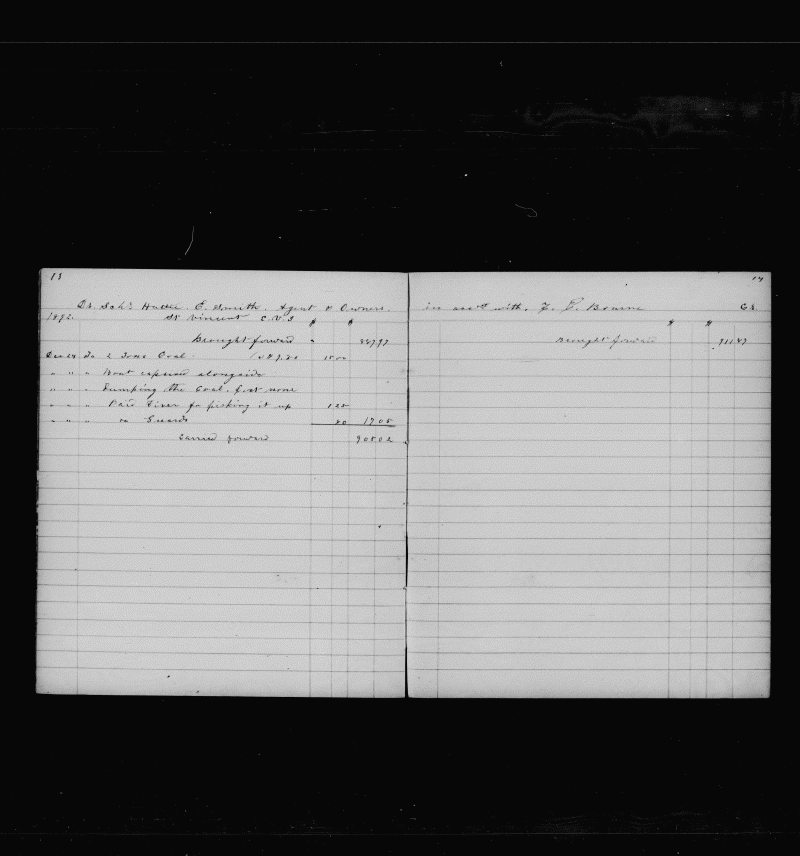 13
Dr. Schr Hattie. E. Smith. Agent & Owners.
1892. St Vincent C.V.I
$ $
Brought forward " 887.97
Dec 24 To 2 Tons Coal 15 00
" " " Boat capsized alongside
" " " Dumping the Coal. first none
" " " Paid Diver for picking it up 1 25
" " " " Guards 80 17 05
Carried forward 905.02
14
in acct with. F. Bourne Cr.
$ $
Brought forward 911.47